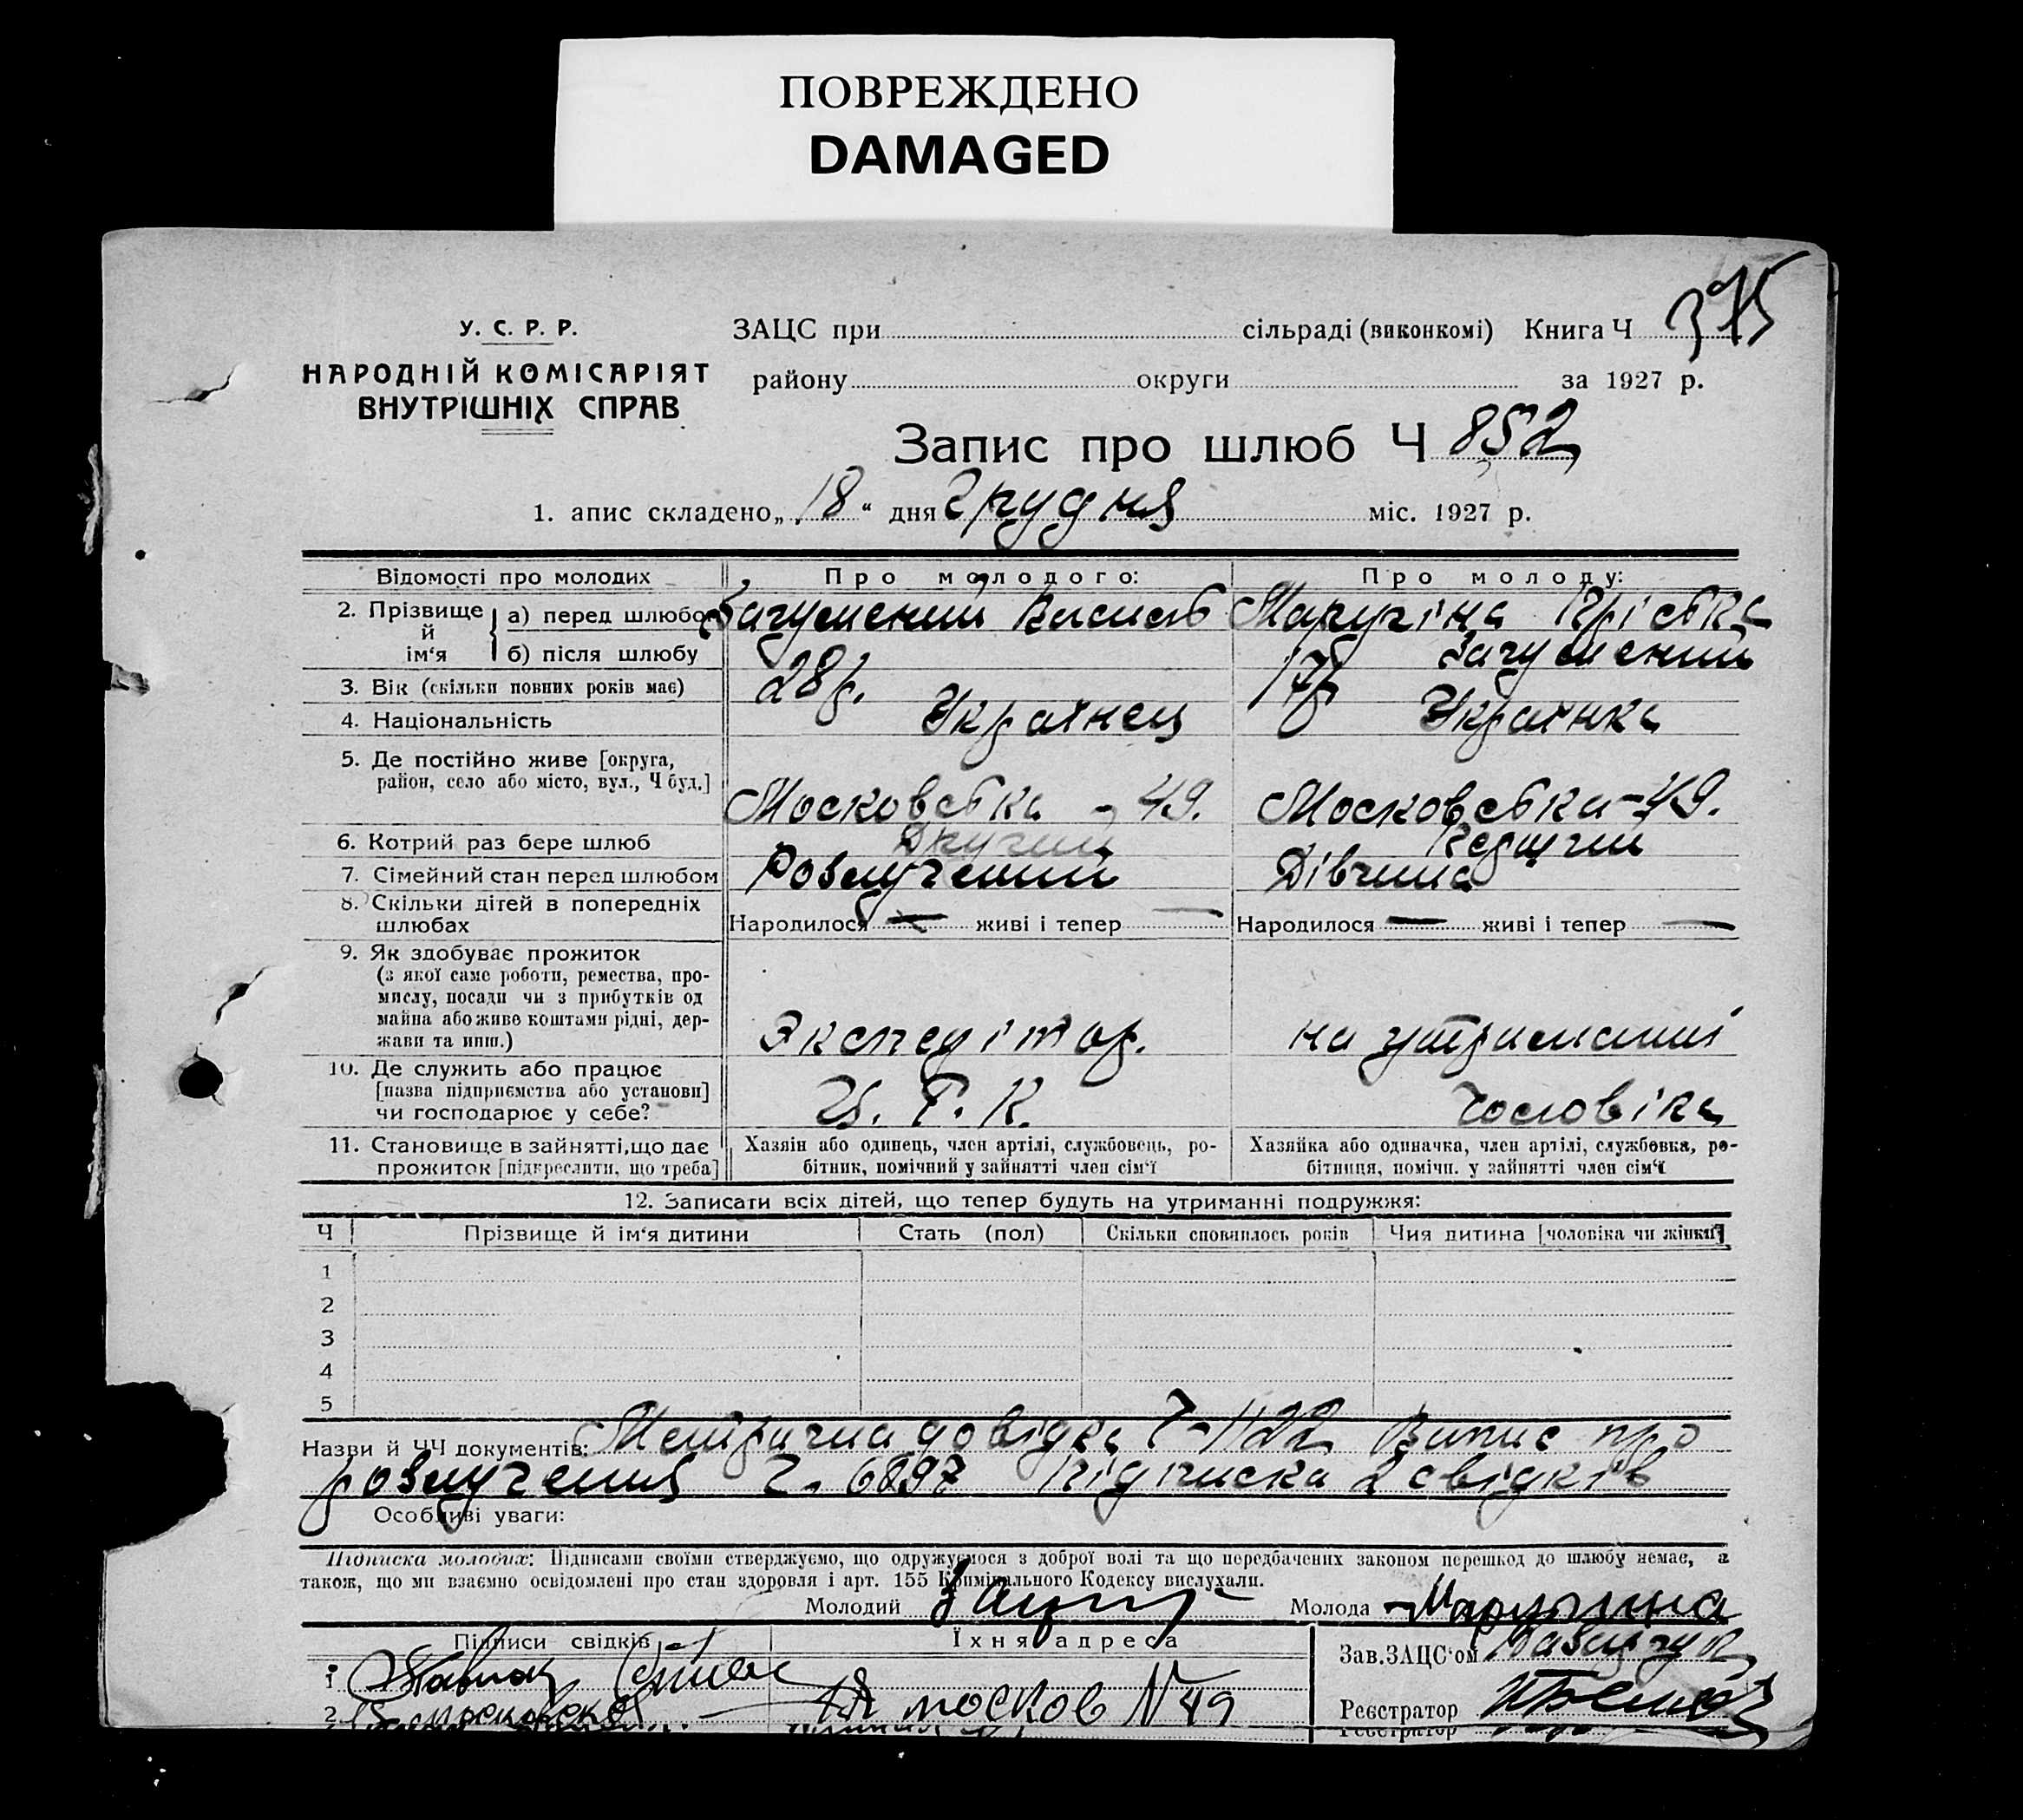 ПОВРЕЖДЕНО
DAMAGED
У. С. Р. Р.
НАРОДНІЙ КОМІСАРІЯТ
ВНУТРІШНІХ СПРАВ
ЗАЦС при сільраді (виконкомі) Книга Ч 375
району округи за 1927 р.
Запис про шлюб Ч 852
1. апис складено „18“ дня Грудня міс. 1927 р.
Відомості про молодих Про молодого: Про молоду:
2. Прізвище й ім‘я
а) перед шлюбом Загумений Василь Маругіна Крістка
б) після шлюбу Загумений
3. Вік (скільки повних років має) 28 р. 17 р
4. Національність Українец Українка
5. Де постійно живе [округа, район, село або місто, вул., Ч буд.] Московська - 49. Московська - 49.
6. Котрий раз бере шлюб Другий Первий
7. Сімейний стан перед шлюбом Розлучений Дівчина
8. Скільки дітей в попередніх шлюбах Народилося — живі і тепер — Народилося — живі і тепер —
9. Як здобуває прожиток
(з якої саме роботи, ремества, про-
мислу, посади чи з прибутків од
майна або живе коштами рідні, дер-
жави та инш.) Экспедітор. на утриманні
10. Де служить або працює
[назва підприємства або установи]
чи господарює у себе? Ц. Р. К. Чоловіка
11. Становище в зайнятті, що дає
прожиток [підкреслити, що треба]
Хазяїн або одинець, член артілі, службовець, ро-
бітник, помічний у зайнятті член сім‘ї
Хазяйка або одиначка, член артілі, службовка, ро-
бітниця, помічн. у зайнятті член сім‘ї
12. Записати всіх дітей, що тепер будуть на утриманні подружжя:
Ч Прізвище й ім‘я дитини Стать (пол) Скільки сповнилось років Чия дитина [чоловіка чи жінки]
1
2
3
4
5
Назви й ЧЧ документів: Метрична довідка Ч-1122 Випис про
розлучення Ч. 6897 Підписка 2 свідків
Особливі уваги:
Підписка молодих: Підписами своїми стверджуємо, що одружуємося з доброї волі та що передбачених законом перешкод до шлюбу немає, а
також, що ми взаємно освідомлені про стан здоровля і арт. 155 Кримінального Кодексу вислухали.
Молодий Молода Маругина
Підписи свідків Їхня адреса Зав. ЗАЦС‘ом
1
2 москов N 49 Реєстратор
Реєстратор